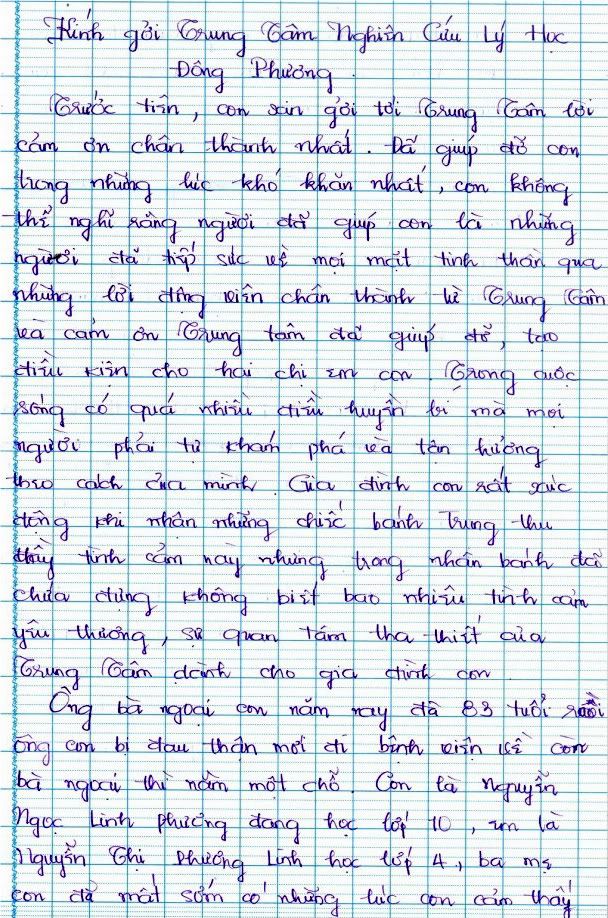 Kính gởi Trung Tâm Nghiên Cứu Lý Học
Đông Phương.
Trước tiên, con xin gởi tới Trung Tâm lời
cảm ơn chân thành nhất. Đã giúp đỡ con
trong những lúc khó khăn nhất, con không
thể nghĩ rằng người đã giúp con là những
người đã tiếp sức về mọi mặt tinh thần qua
những lời động viên chân thành từ Trung Tâm
và cảm ơn Trung tâm đã giúp đỡ, tạo
điều kiện cho hai chị em con. Trong cuộc
sống có quá nhiều điều huyền bí mà mọi
người phải tự khám phá và tận hưởng
theo cách của mình. Gia đình con rất xúc
động khi nhận những chiếc bánh Trung thu
đầy tình cảm này nhưng trong nhân bánh đã
chứa đựng không biết bao nhiêu tình cảm
yêu thương, sự quan tâm tha thiết của
Trung Tâm dành cho gia đình con.
Ông bà ngoại con năm nay đã 83 tuổi rồi
ông con bị đau thận mới đi bệnh viện về còn
bà ngoại thì nằm một chỗ. Con là Nguyễn
Ngọc Linh Phương đang học lớp 10, em là
Nguyễn Thị Phương Linh học lớp 4, ba mẹ
con đã mất sớm có những lúc con cảm thấy